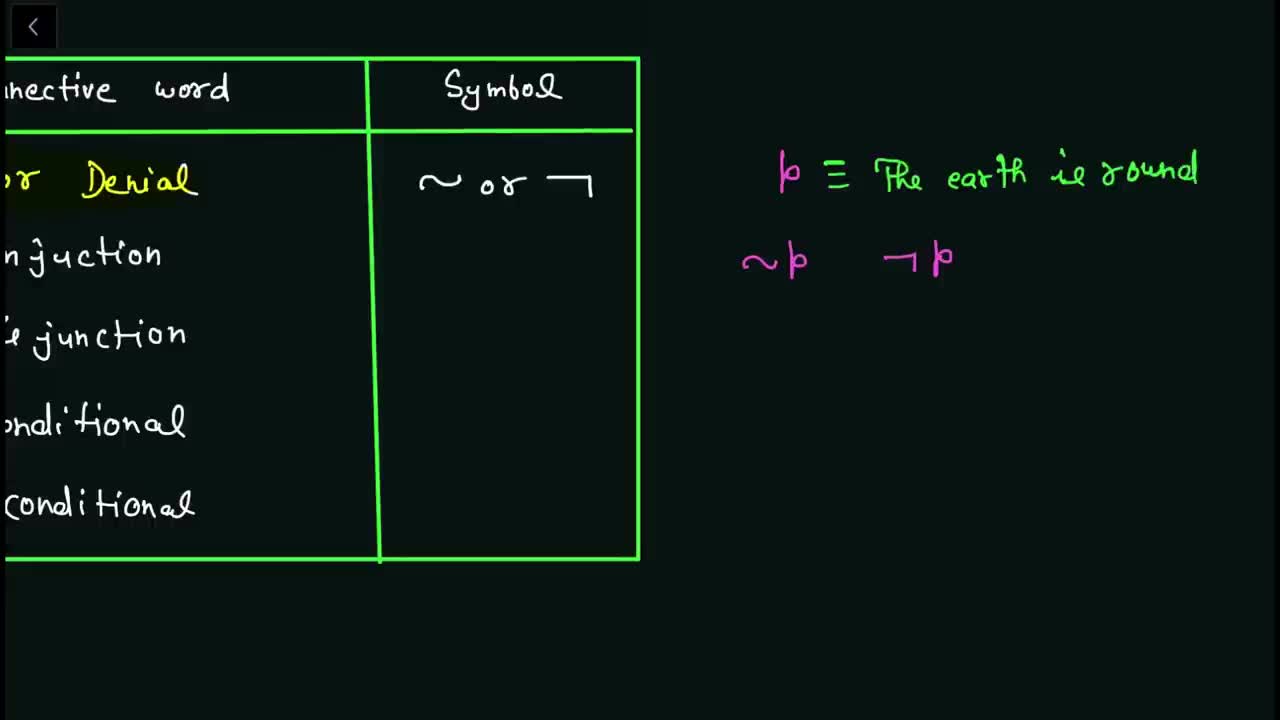 nnective word
Symbol
or Denial
~ or ¬
njuction
junction
onditional
conditional
p ≡ The earth is round
~p ¬p